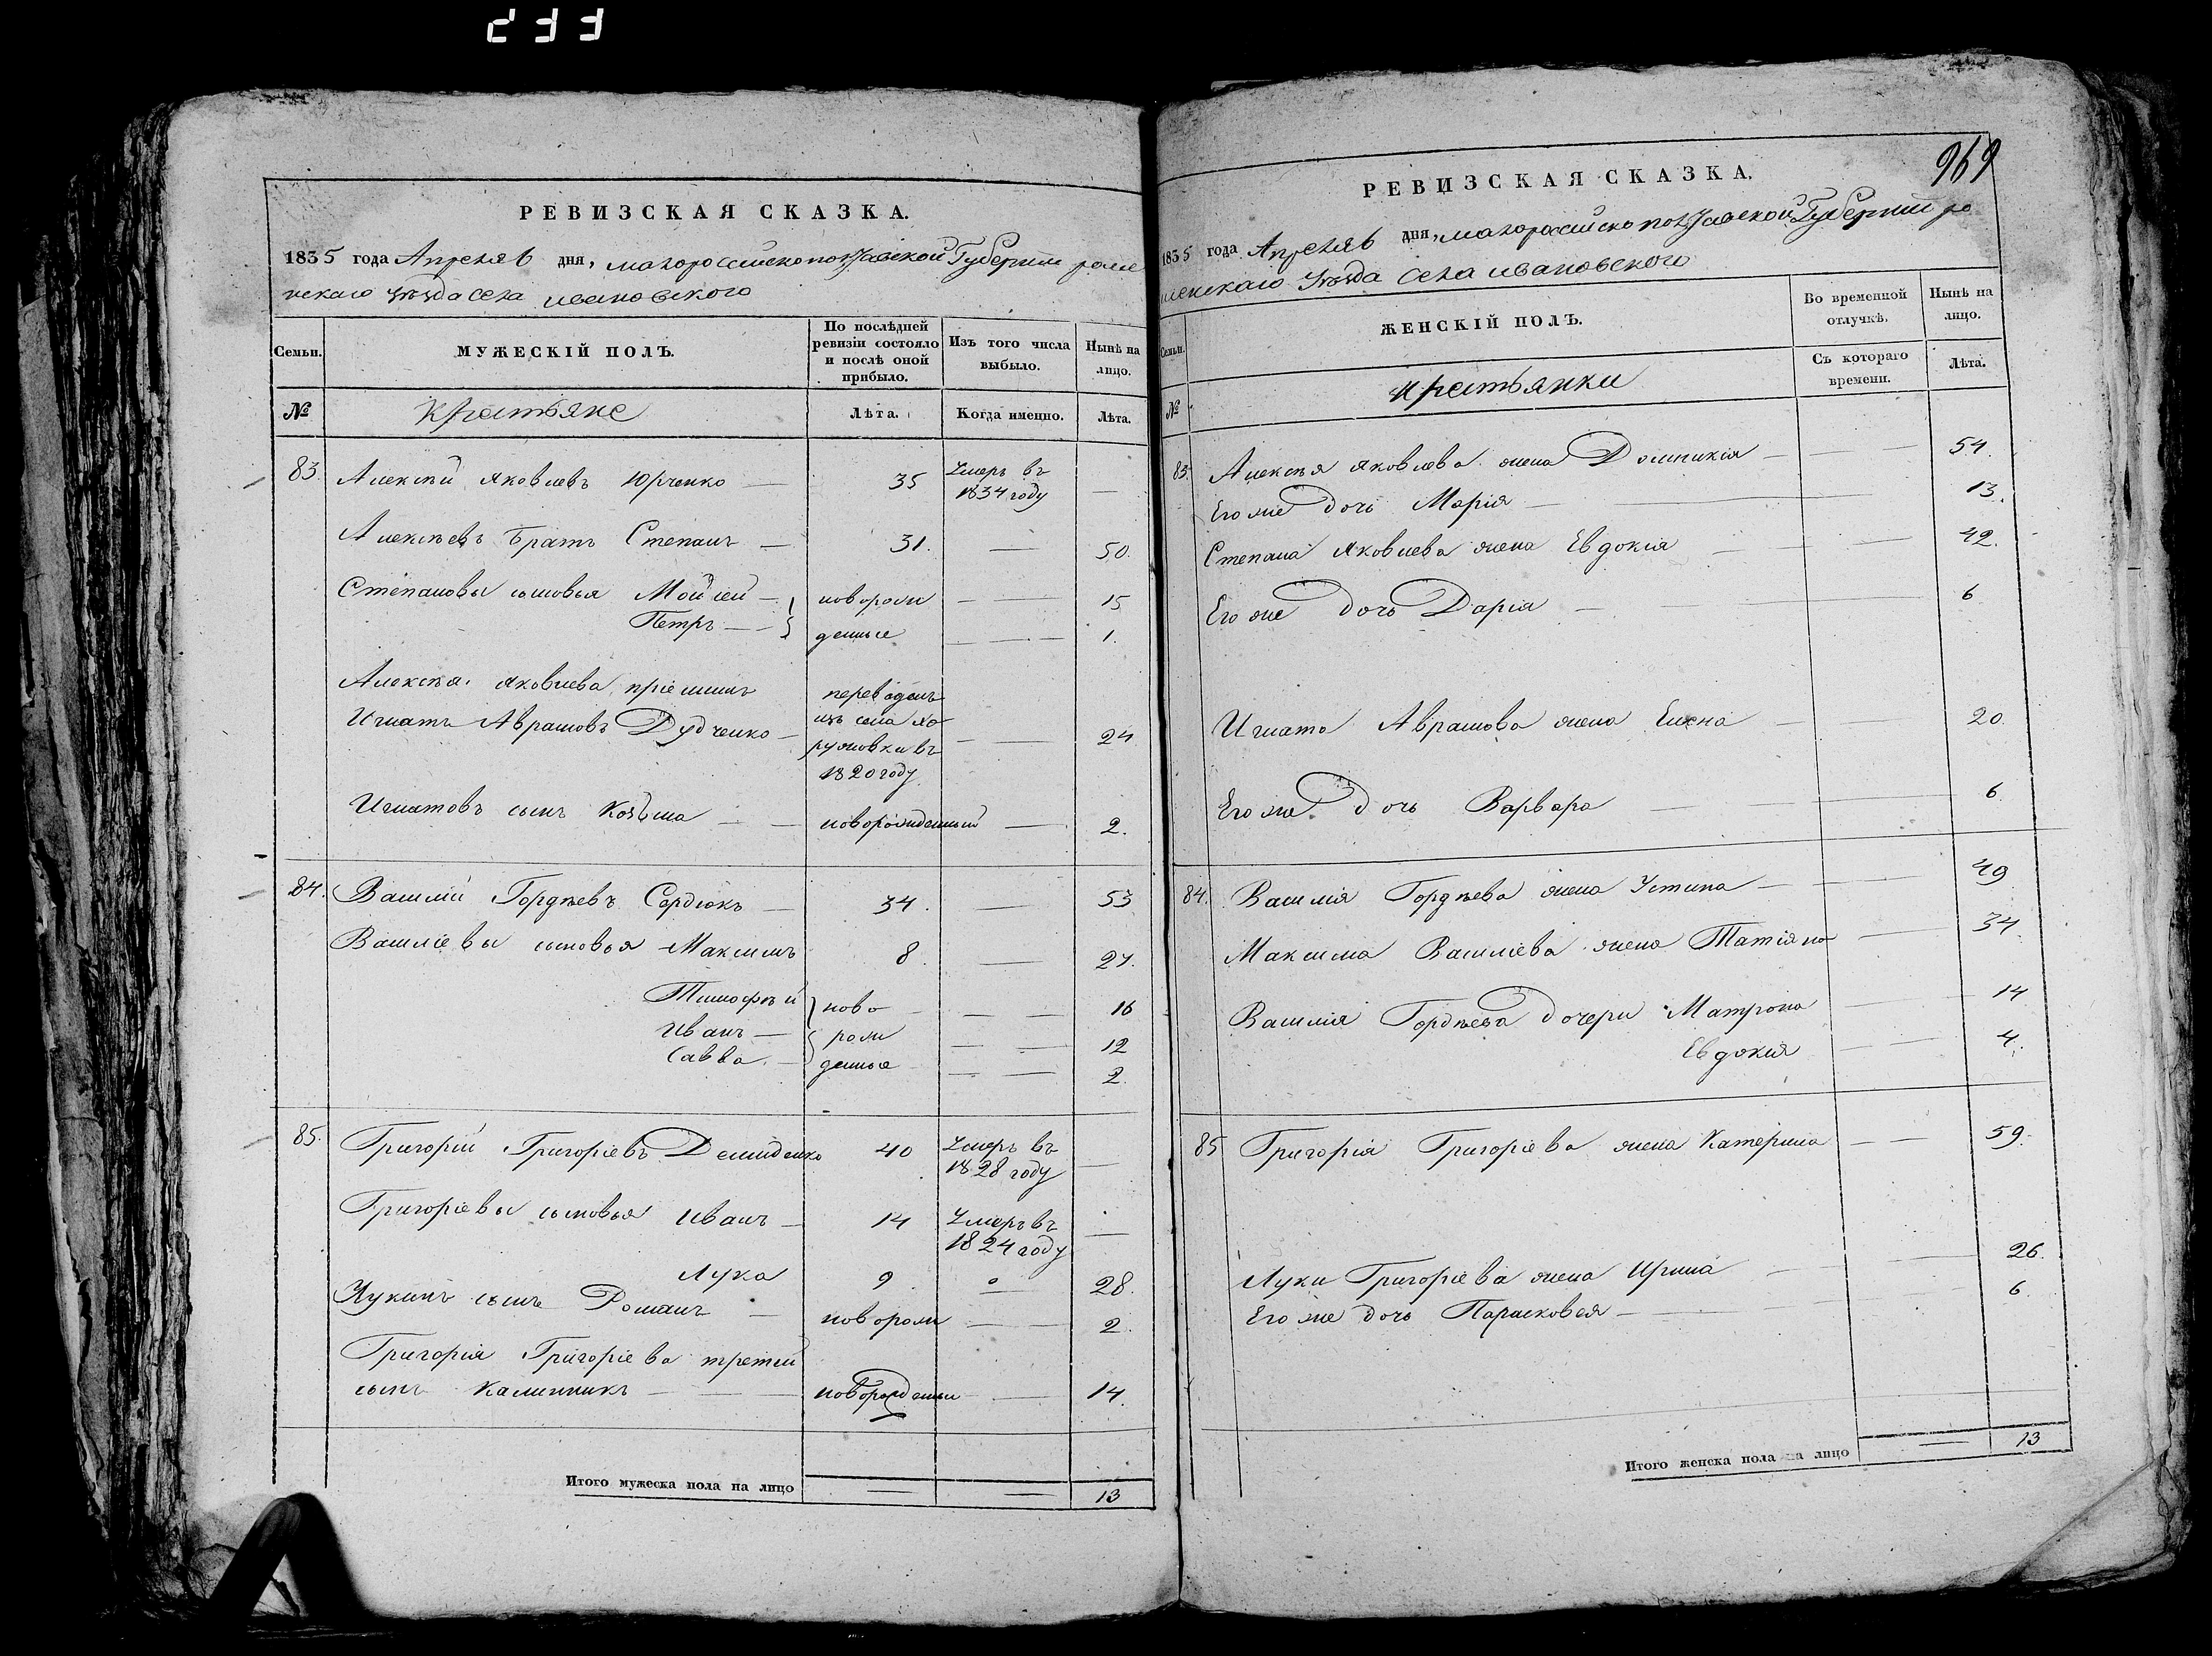 233
РЕВИЗСКАЯ СКАЗКА.
1835 года Апреля 6 дня, малороссийско полтавской Губернии роме
нскаго Уѣзда села ивановского
Семьи.
МУЖЕСКІЙ ПОЛЪ.
По послѣдней ревизіи состояло и послѣ оной прибыло.
Изъ того числа выбыло.
Нынѣ на лицо.
№ Крестьяне Лѣта. Когда именно. Лѣта.
83. Алексѣй Яковлевъ Юрченко — 35 Умеръ въ 1834 году —
Алексѣевъ Братъ Степанъ — 31. — 50.
Степановы сыновья Мойсей — новорож — 15
Петръ — денные — 1.
Алексѣя Яковлева пріемышъ переведенъ
Игнатъ Аврамовъ Дудченко — изъ села хо
ружовки въ — 24
1820 году
Игнатовъ сынъ Козьма — новорожденный — 2.
84. Василій Гордѣевъ Сердюкъ — 34. — 53
Василіевы сыновья Максимъ 8. — 27.
Тимофѣй ново — 16
Иванъ — рож — 12
Савва — денные — 2.
85. Григорій Григоріевъ Демиденко 40 Умеръ въ 1828 году —
Григоріевы сыновья Иванъ — 14 Умеръ въ 1824 году —
Лука 9 — 28.
Лукинъ сынъ Романъ — новорож — 2.
Григорія Григоріева третій
сынъ Калинникъ — новорожденны — 14.
Итого мужеска пола на лицо — — 13
969
РЕВИЗСКАЯ СКАЗКА.
1835 года Апреля 6 дня, малороссийско полтавской Губернии ро
менскаго Уѣзда села ивановского
Семьи.
ЖЕНСКІЙ ПОЛЪ.
Во временной отлучкѣ.
Нынѣ на лицо.
Съ котораго времени.
Лѣта.
№ крестьянки
83. Алексѣя Яковлева жена Домникія — 54.
Его же дочь Марія — 13.
Степана Яковлева жена Евдокія — 42.
Его же дочь Дарія — 6
Игната Аврамова жена Елена — 20.
Его же дочь Варвара — 6.
84. Василія Гордѣева жена Устина — 49
Максима Василіева жена Татіяна — 34.
Василія Гордѣева дочери Матрона — 14
Евдокія — 4.
85 Григорія Григоріева жена Катерина — 59.
Луки Григоріева жена Ирина — 26.
Его же дочь Парасковея — 6
Итого женска пола на лицо — 13